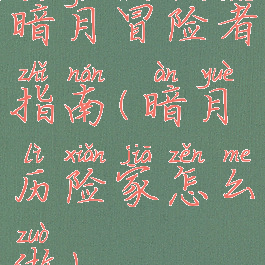 暗月冒险者
zhǐ nán àn yuè
指南(暗月
lì xiǎn jiā zěn me
历险家怎么
zuò
做)